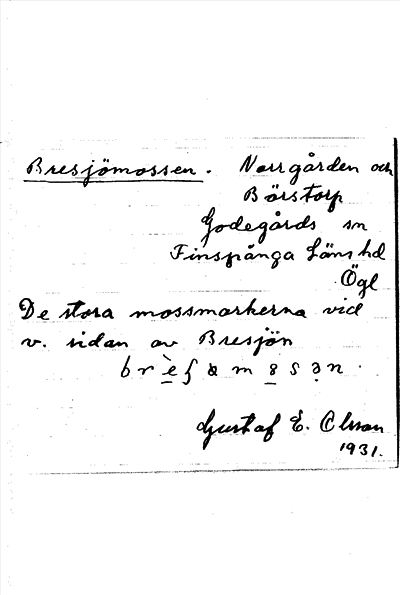 Bresjömossen. Norrgården och
Börstorp
Godegårds sn
Finspånga läns hd
Ögl
De stora mossmarkerna vid
v. sidan av Bresjön
Gustaf E. Olsson
1931.